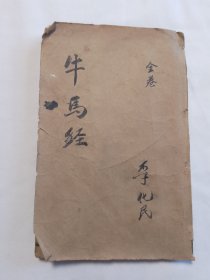 全卷
牛馬經
李化民